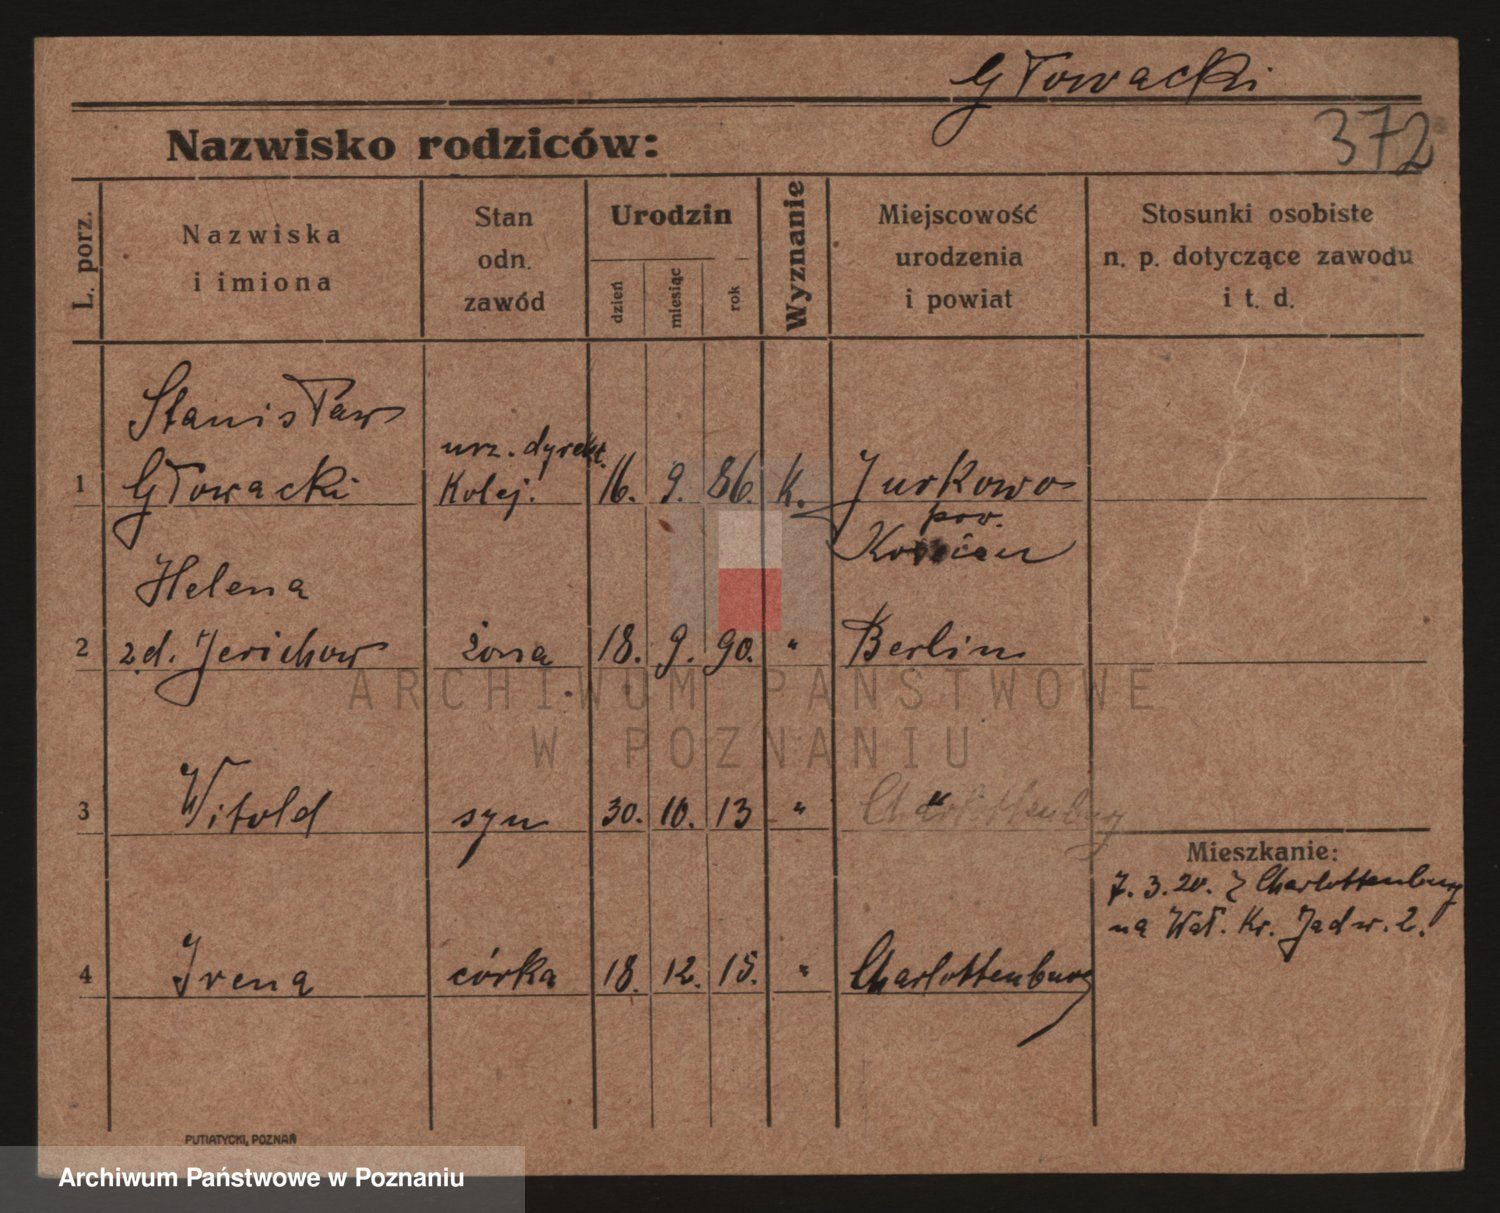 Głowacki
372
Nazwisko rodziców:
L. porz.
Nazwiska
i imiona
Stan
odn.
zawód
Urodzin
dzień
miesiąc
rok
Wyznanie
Miejscowość
urodzenia
i powiat
Stosunki osobiste
n. p. dotyczące zawodu
i t. d.
Stanisław
1 Głowacki urz. dyrekt. Kolej. 16. 9. 86. K. Jurkowo
pow.
Kościan
Helena
2 zd. Jerichow żona 18. 9. 90. " Berlin
ARCHIWUM PAŃSTWOWE
W POZNANIU
3 Witold syn 30. 10. 13 " Charlottenburg "
Mieszkanie:
7. 3. 20. z Charlottenburg
na Wał. Kr. Jadw. 2.
4 Irena córka 18. 12. 15. " Charlottenburg
PUTIATYCKI, POZNAŃ
Archiwum Państwowe w Poznaniu